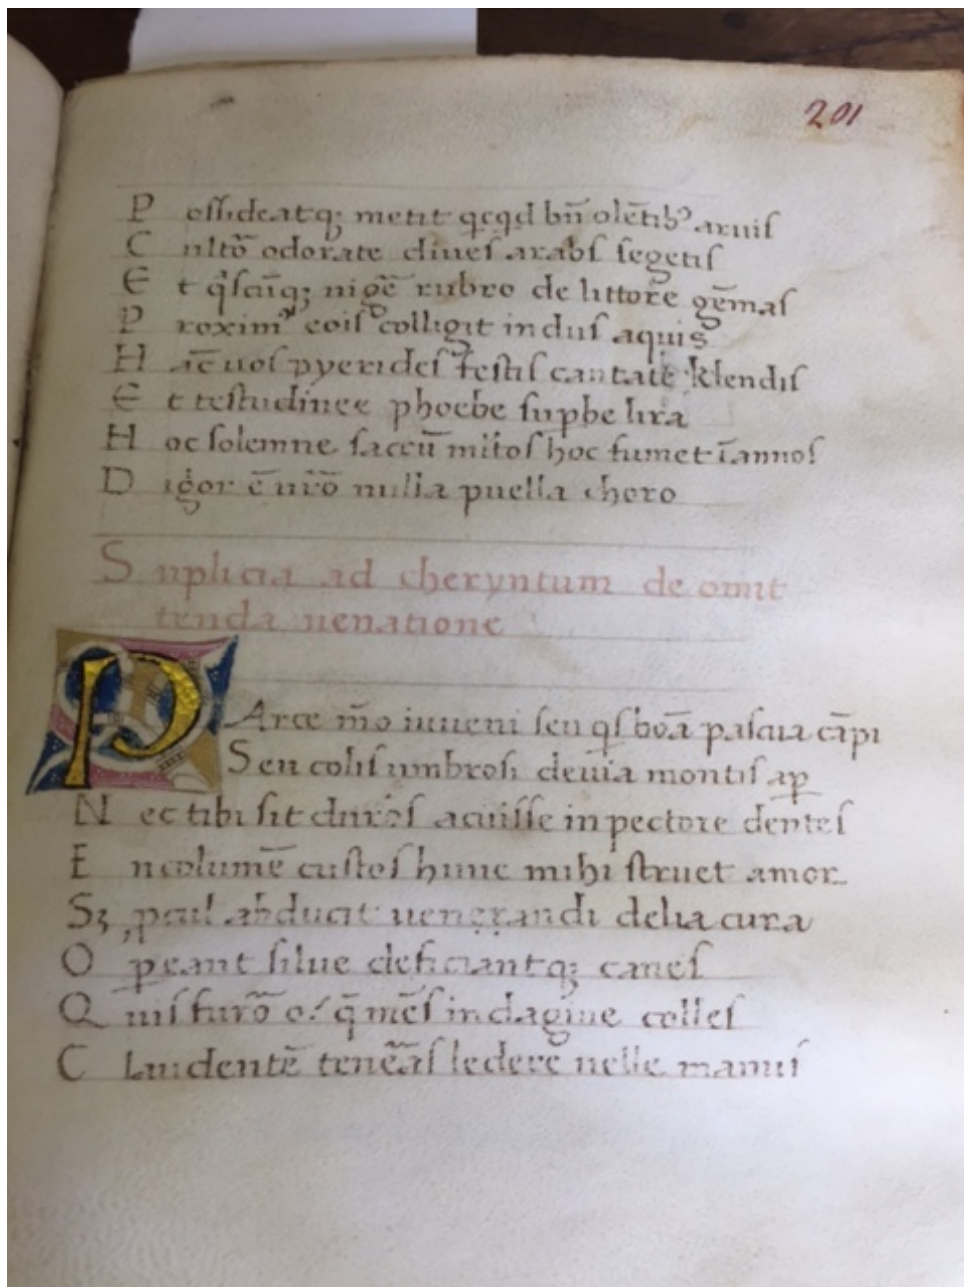 201
P ossideatq; metit qcqd bn̄ olētibꝰ aruis
C ultō odorate diues arabs segetis
E t q̇scūq; nigē rubro de littore gēmas
P roximꝰ eois colligit indus aquis
H āc uos pyerides festis cantate klendis
E t testudinee phoebe supbe lira
H oc solemne saccū mltos hoc sumet ī annos
D igōr ē urō nulla puella choro
S uplicia ad cheryntum de omit
tenda uenatione
P Arce mō iuueni seu qs boā pascua cāpi
S eu colis umbrosi deuia montis ap
N ec tibi sit duros acuisse in pectore dentes
E ncolumē custos hunc mihi struet amor
Sꝫ pcul abducit uenerandi delia cura
O peant silue deficiantq; canes
Q uis furō q̄ mēs indagine colles
C laudentē tenēas ledere uelle manus